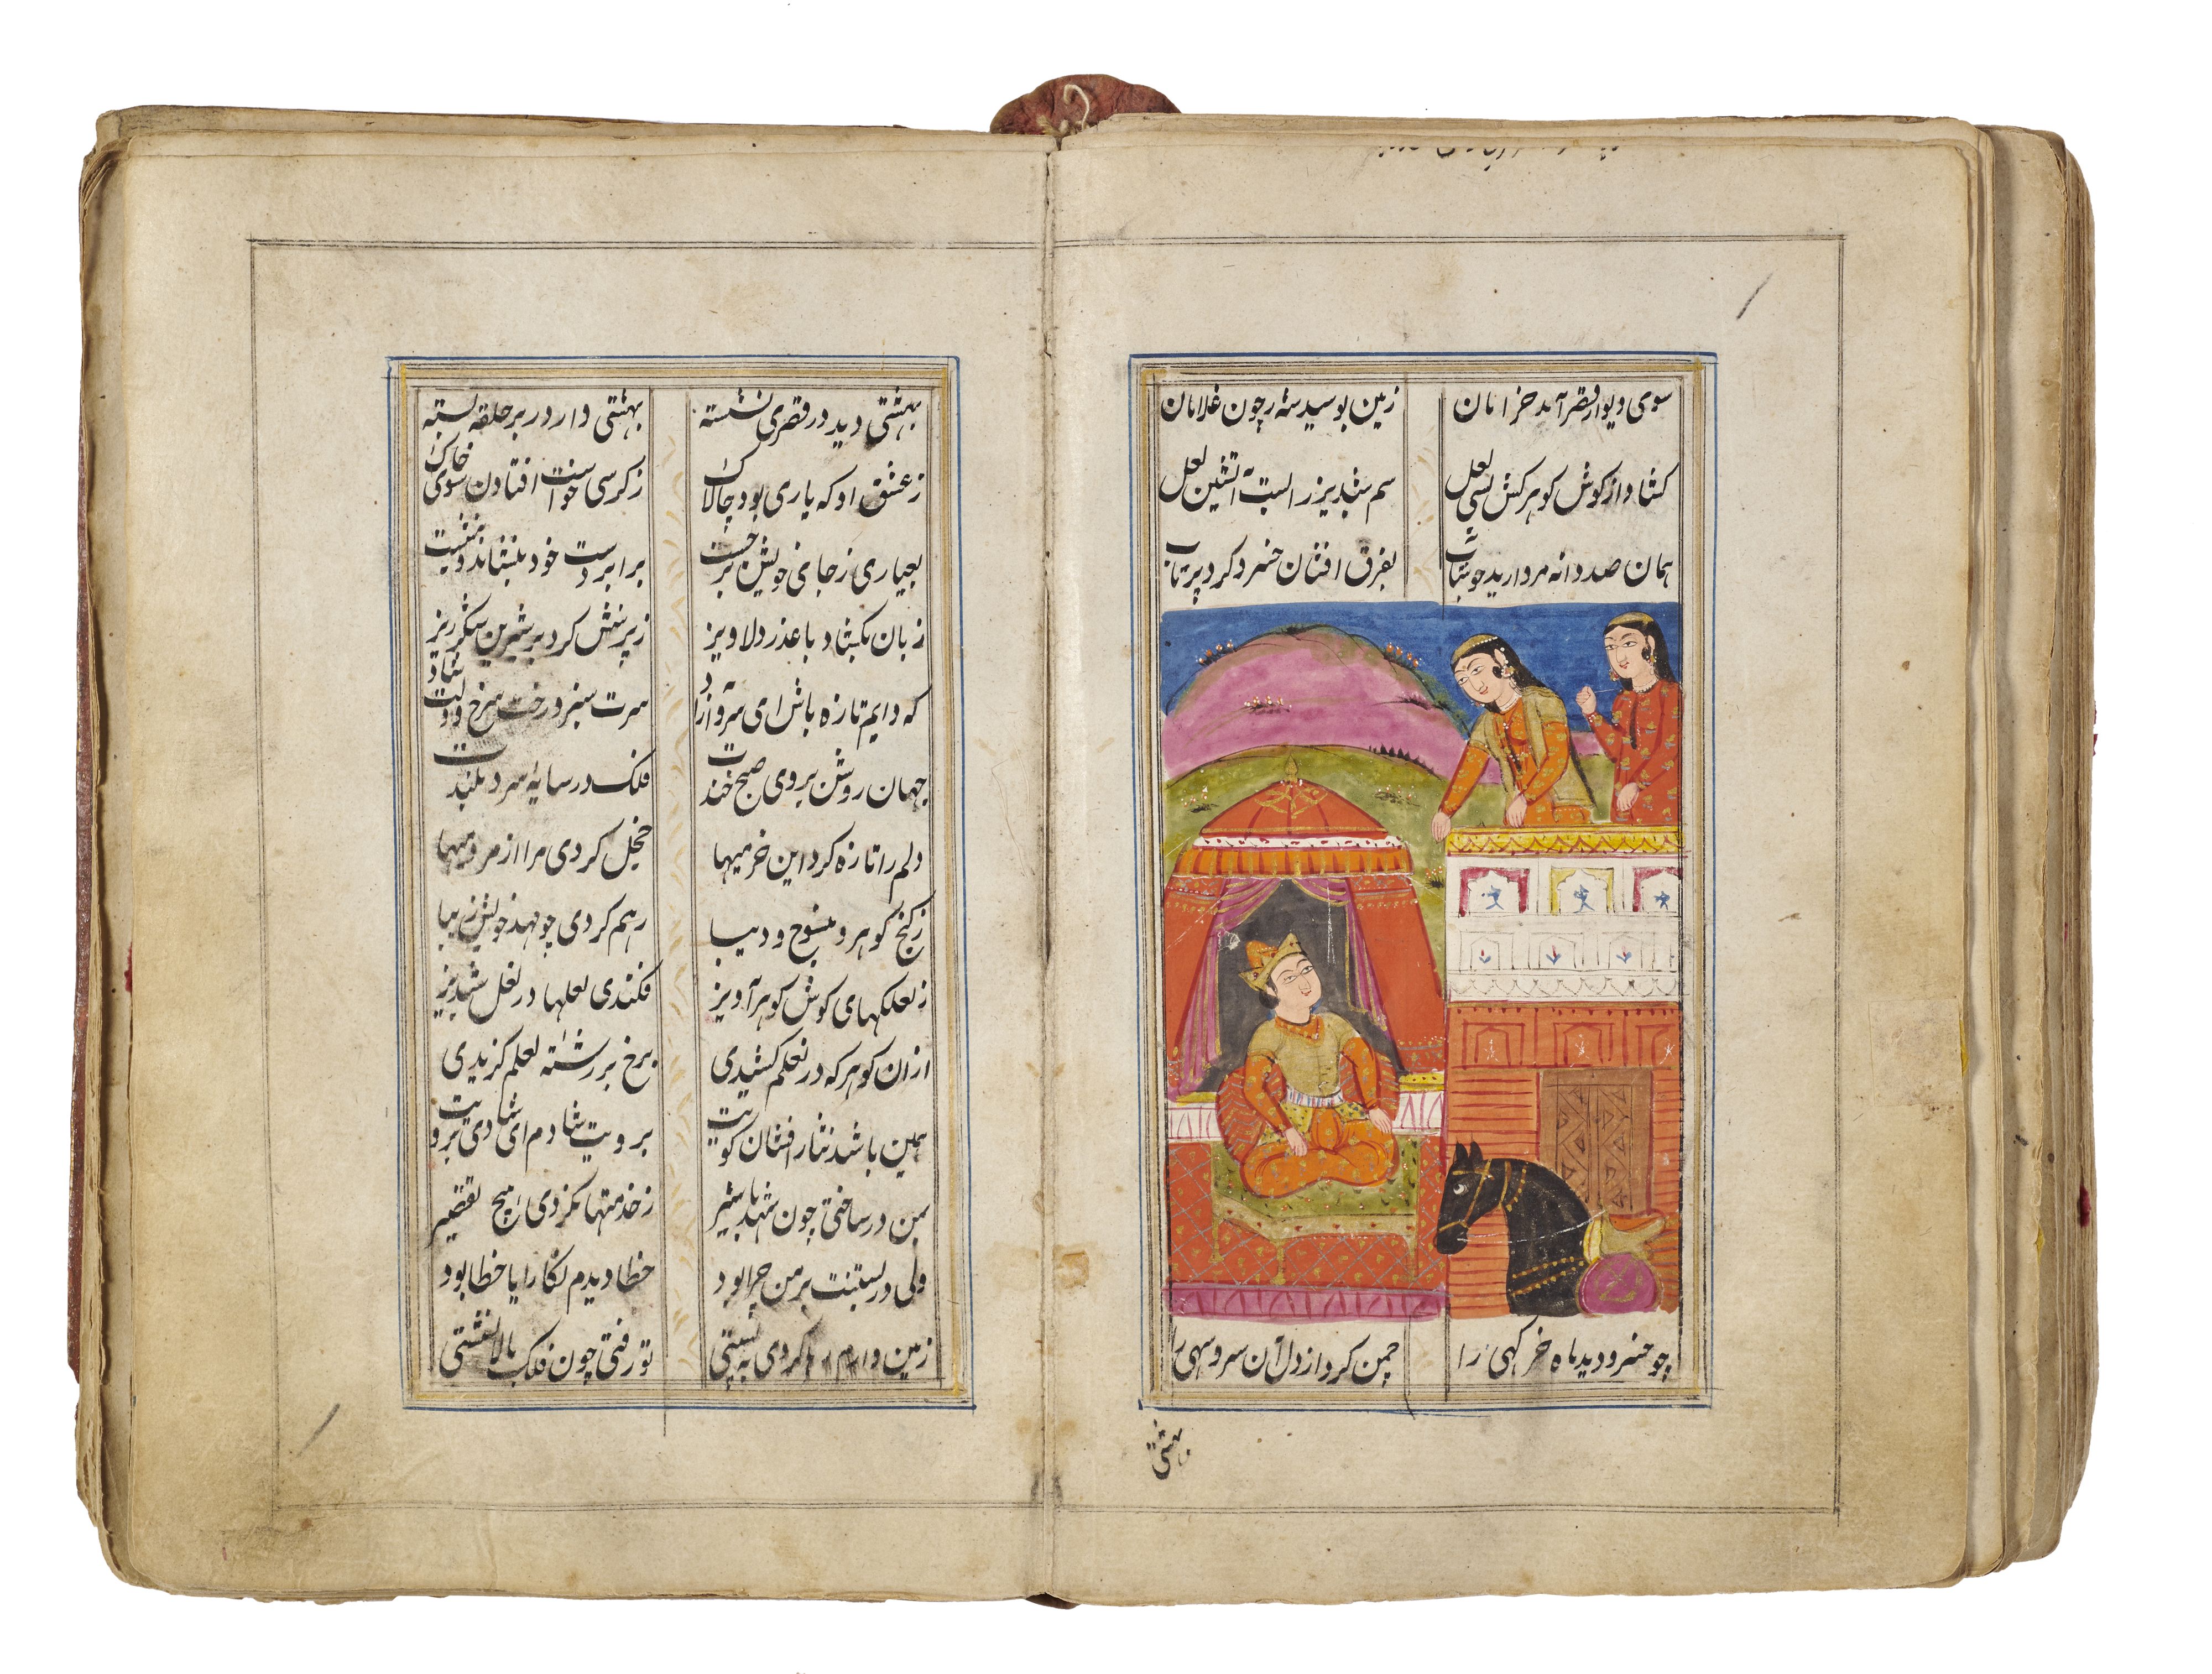 سوی دیوار قصر آمد خرامان زمین بوسید شه رچون غلامان
کشاد از کوش کوهرکش بسی لعل سم شبدیز را بست آتشین لعل
همان صد دانه مروارید خوشاب بفرق افشان خسرو کرد پرتاب
چو خسرو دید ماه خرکهی را چمن کرد از دل آن سرو سهی را
بهشتی
بهشتی دید در قصری نشسته بهشتی دار در بر حلقه بسته
ز عشق او که یاری بود چالاک ز کرسی خواست افتادن سوی خاک
بعیاری ز جای خویش برجست برابر دست خود بنشاند و بنشست
زبان بکشاد با عذر دلاویز ز پرسش کرد بر شیرین شکرریز
که دایم تازه باش ای سرو آزاد سرت سبز و رخت سرخ و دلت شاد
جهان روشن بروی صبح خندت فلک در سایه سرو بلندت
دلم را تازه کرد این خرمیها خجل کردی مرا از مردمیها
ز کنج کوهر و منسوج و دیبا رهم کردی چو مهد خویش زیبا
ز لعلکهای کوش کوهرآویز فکندی لعلها در نعل شبدیز
ازان کوهر که در نعلم کشیدی برخ بر رشته لعلم کزیدی
همین باشد نثار افشان کویت برویت شادم ای شادی برویت
بمن در ساختی چون شهد با شیر ز خدمتها نکردی هیچ تقصیر
ولی در بستنت بر من چرا بود خطا دیدم نکارا یا خطا بود
زمین وارم رها کردی به پستی تو رفتی چون فلک بالا نشستی